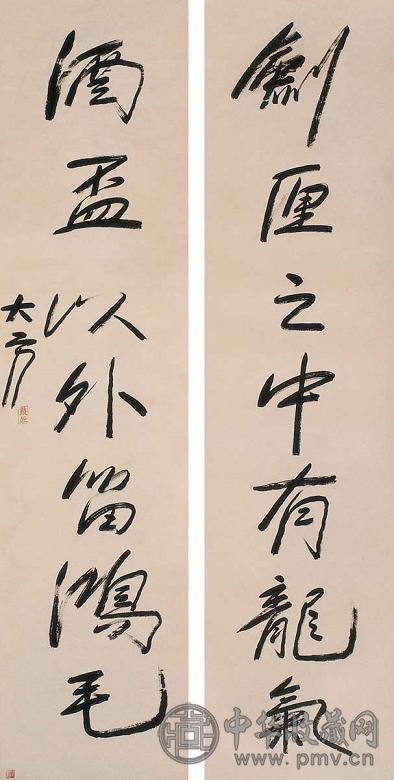 劍匣之中有龍氣
酒盃以外皆鴻毛
大方
中华收藏网
www.pmv.cn